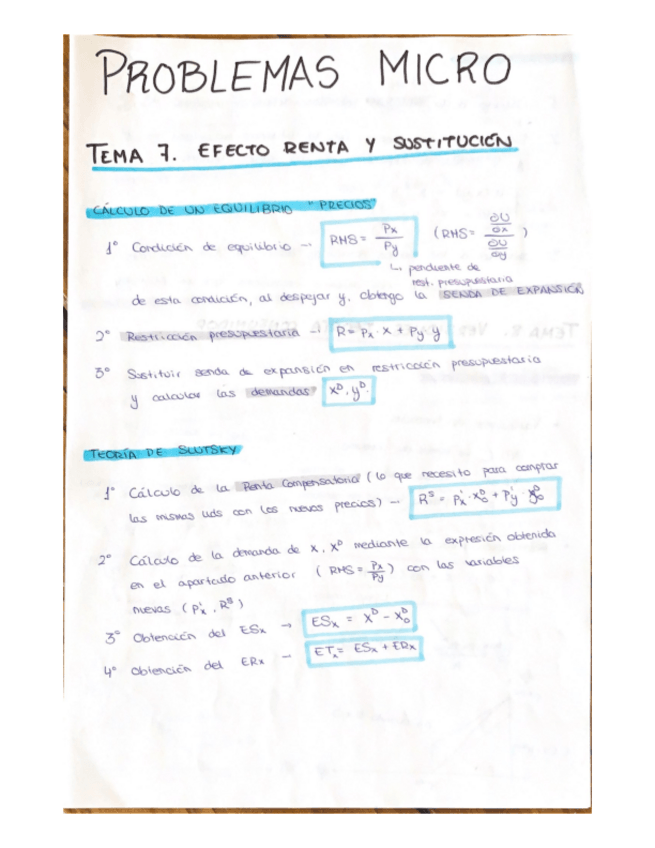 PROBLEMAS MICRO
TEMA 7. EFECTO RENTA Y SUSTITUCIÓN
CÁLCULO DE UN EQUILIBRIO "PRECIOS"
1° Condición de equilibrio → RMS = Px/Py (RMS = (∂U/∂x)/(∂U/∂y))
↳ pendiente de
rest. presupuestaria
de esta condición, al despejar y, obtengo la SENDA DE EXPANSIÓN
2° Restricción presupuestaria → R = Px · x + Py · y
3° Sustituir senda de expansión en restricción presupuestaria
y calcular las demandas xᴰ, yᴰ.
TEORÍA DE SLUTSKY
1° Cálculo de la Renta Compensatoria (lo que necesito para comprar
las mismas uds con los nuevos precios) → Rˢ = P'x · xᴰ₀ + P'y · yᴰ₀
2° Cálculo de la demanda de x, xᴰ mediante la expresión obtenida
en el apartado anterior (RMS = Px/Py) con las variables
nuevas (P'x, Rˢ)
3° Obtención del ESx → ESx = xᴰ - xᴰ₀
4° Obtención del ERx → ETx = ESx + ERx